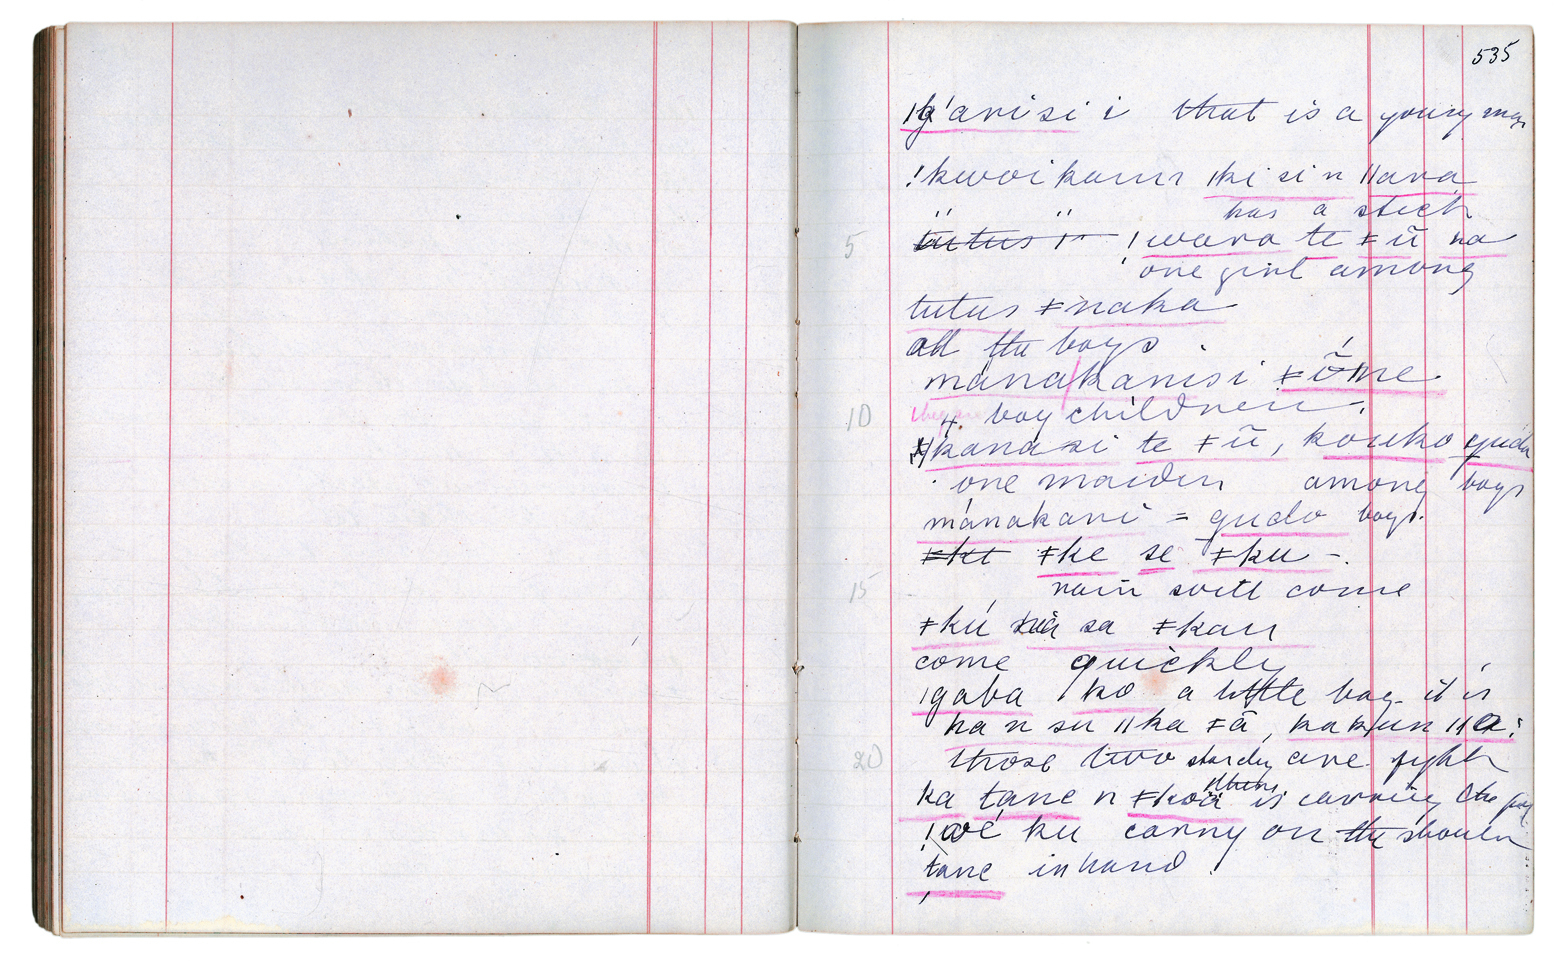 535
|g'arisi i that is a young man
!kwoikam |ki si n ||ara
has a stick
tütus ï !wara te ǂū na
one girl among
tutus ǂnaka
all the boys.
mánakanisi ǂūme
4. boy children
kanasi te ǂū, kouko guda
one maiden among boys
mánakani = gudo boys.
ǂke ǂke se ǂku -
rain will come
ǂkú sa ǂkau
come quickly
|gaba ko a little boy it is
ha n su ||ka ǂā, kakun ||a:
those two sturdy are fight
ka tane n ǂkoa is carrying the
!wé ku carry on the shoulder
tane in hand
5
10
15
20